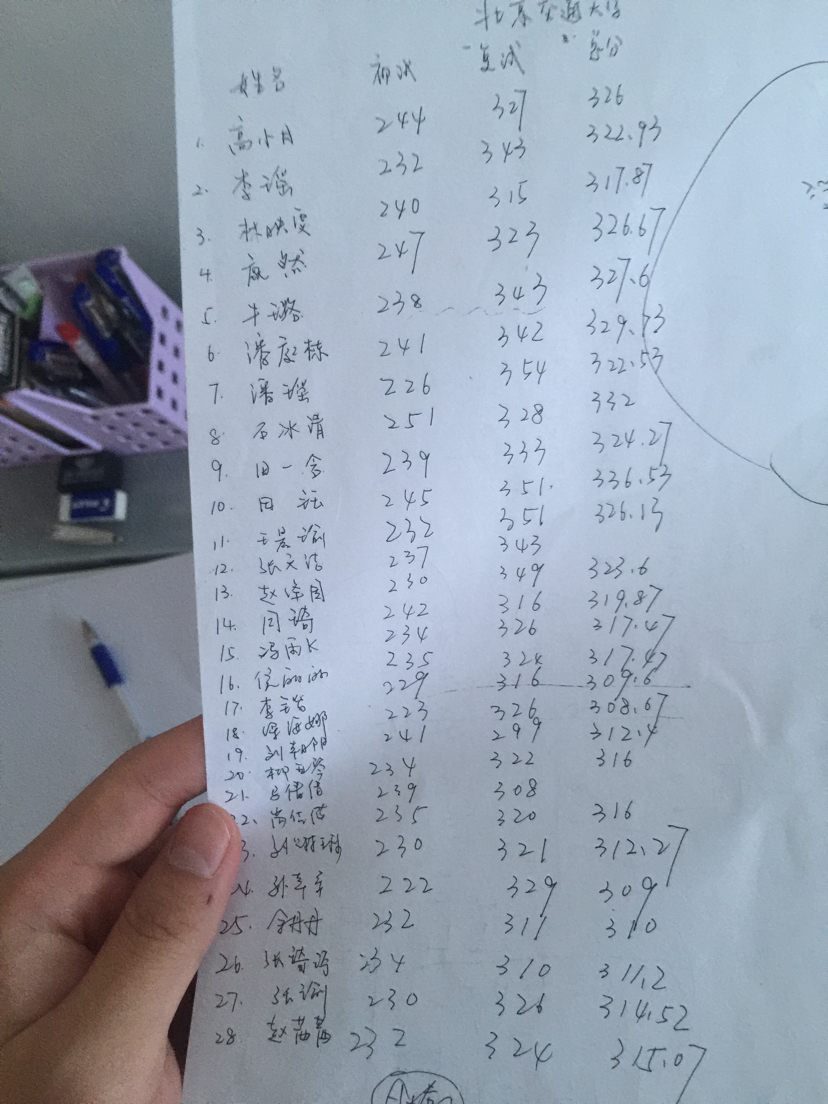 北京交通大学
姓名 初试 复试 总分
1. 高小月 244 327 326
2. 李瑶 232 343 322.93
3. 林映雯 240 315 317.87
4. 然 247 323 326.67
5. 牛璐 238 343 327.6
6. 潘庭栋 241 342 329.73
7. 潘瑶 226 354 322.53
8. 石冰清 251 328 332
9. 田一含 239 333 324.27
10. 田钰 245 351. 336.53
11. 王景瑜 232 351 326.13
12. 张文洁 237 343
13. 赵泽园 230 349 323.6
14. 闫琦 242 316 319.87
15. 冯雨 234 326 317.47
16. 侯丽丽 235 324 317.47
17. 李 229 316 309.6
18. 娜 223 326 308.67
19. 刘朝阳 241 299 312.4
20. 柳 234 322 316
21. 吕倩倩 239 308
22. 尚 235 320 316
3. 刘 230 321 312.27
24. 孙 222 329 309
25. 金丹丹 232 311 310
26. 张 234 310 311.2
27. 张瑜 230 326 314.52
28 赵苒苒 232 324 315.07